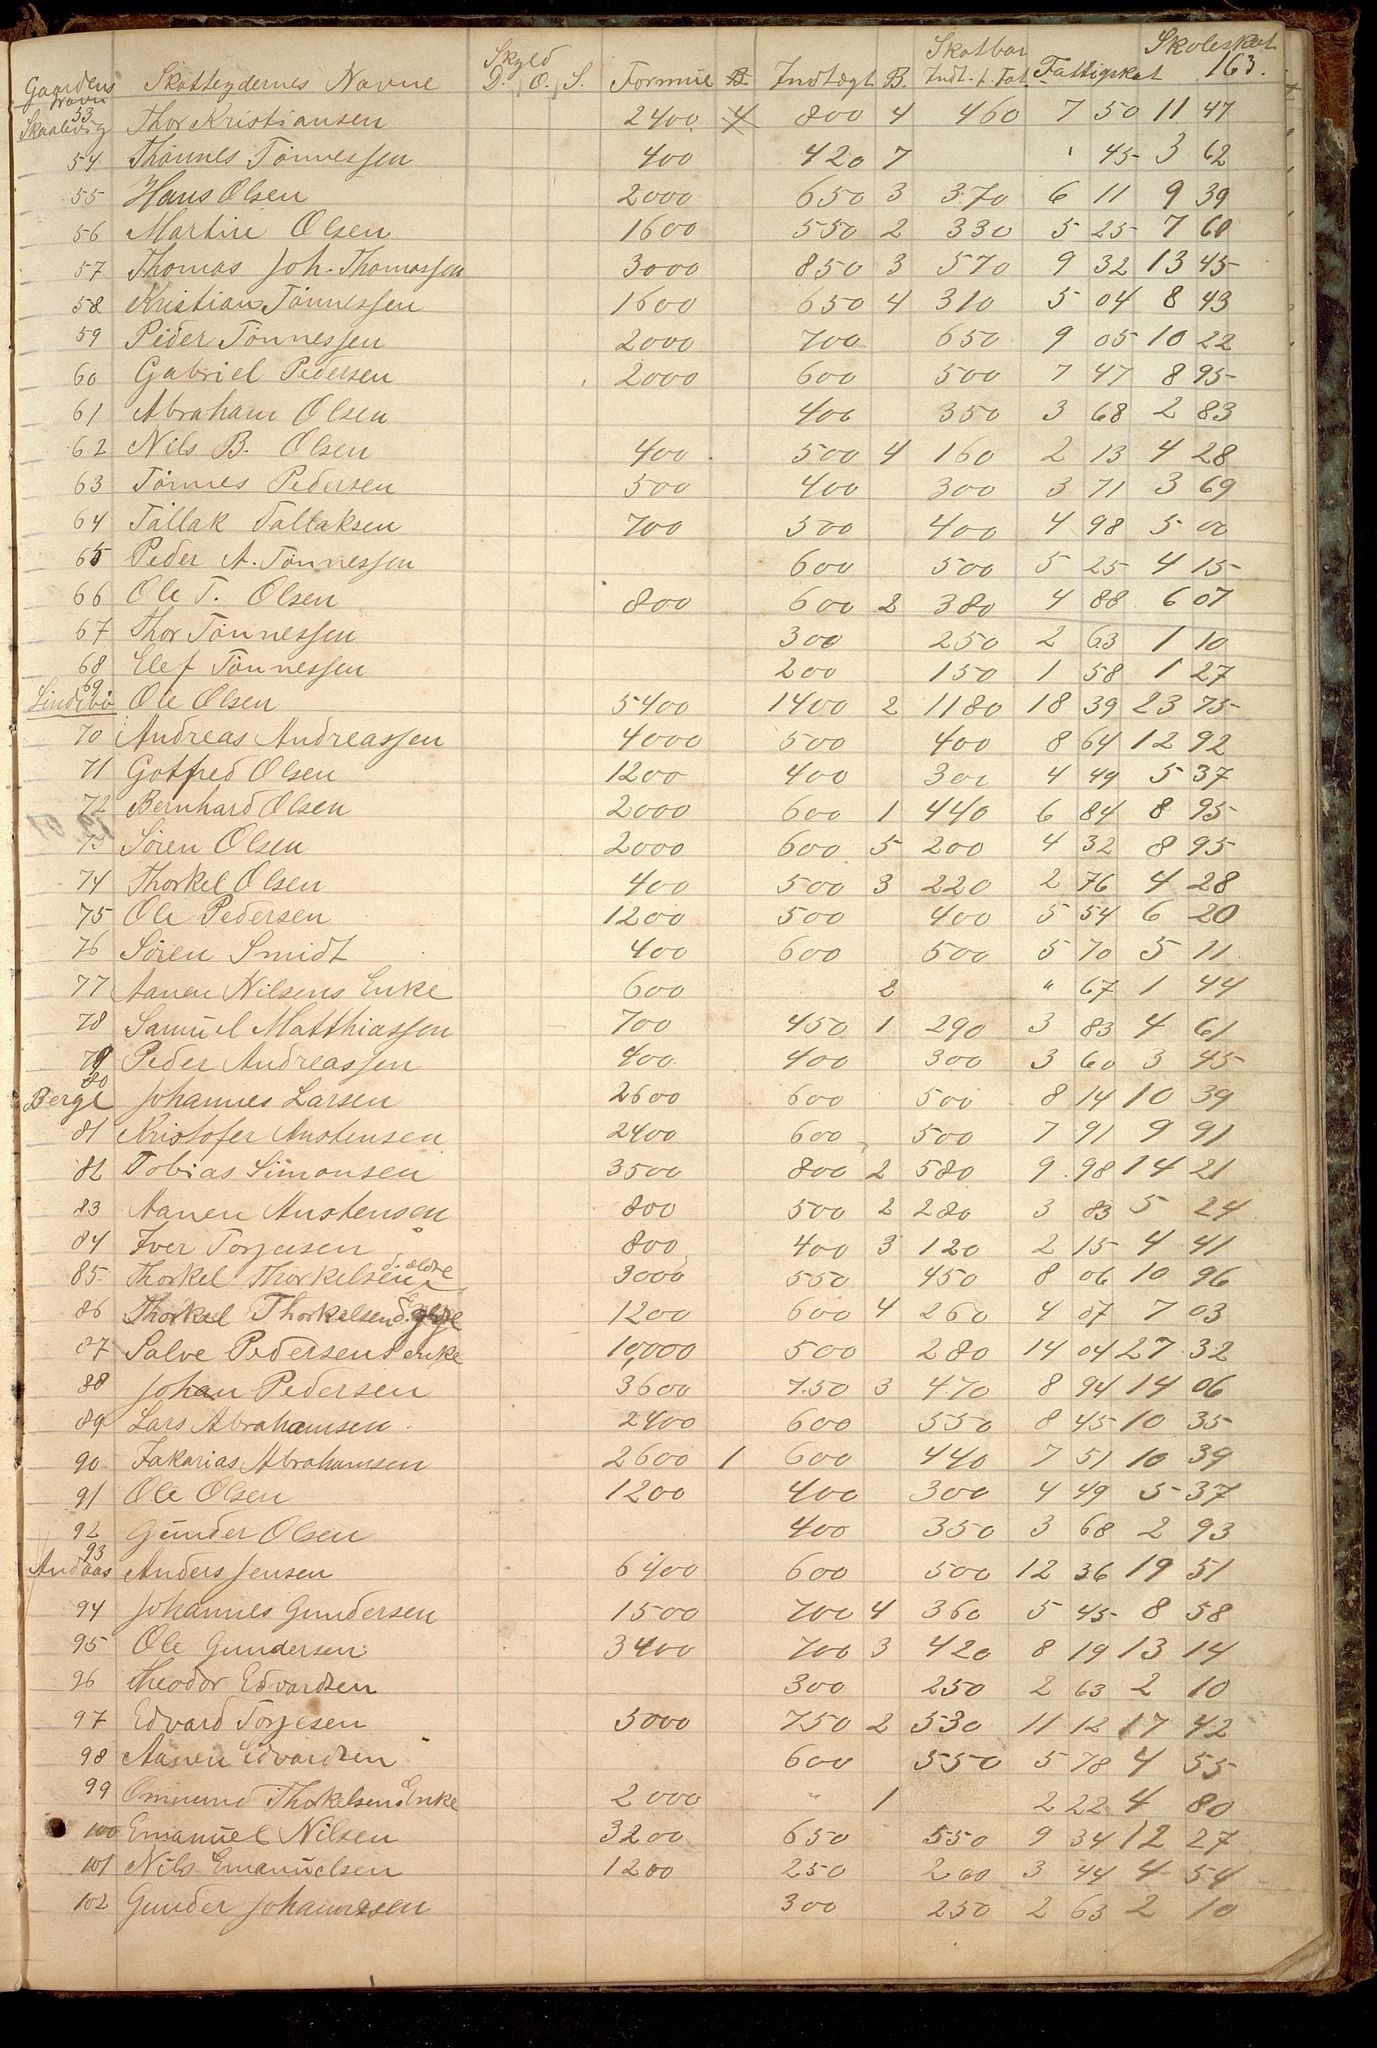 163.
Gaardens Navn Skatteydernes Navne Skyld D. O. S. Formue B. Indtægt B. Skatbar Indt. t. Fat. Fattigskat Skoleskat
Skaalevig 53 Thor Kristiansen 2400 4 800 4 460 7 50 11 47
54 Thönnes Tönnessen 400 420 7 " 45 3 62
55 Hans Olsen 2000 650 3 370 6 11 9 39
56 Martin Olsen 1600 550 2 330 5 25 7 60
57 Thomas Joh. Thomassen 3000 850 3 570 9 32 13 45
58 Kristian Tönnessen 1600 650 4 310 5 04 8 43
59 Peder Tönnessen 2000 700 650 9 05 10 22
60 Gabriel Pedersen 2000 600 500 7 47 8 95
61 Abraham Olsen 400 350 3 68 2 83
62 Nils B. Olsen 400 500 4 160 2 13 4 28
63 Tönnes Pedersen 500 400 300 3 71 3 69
64 Tallak Tallaksen 700 500 400 4 98 5 00
65 Peder A. Tönnessen 600 500 5 25 4 15
66 Ole T. Olsen 800 600 2 380 4 88 6 07
67 Thor Tönnessen 300 250 2 63 1 10
68 Elef Tönnessen 200 150 1 58 1 27
Lindebö 69 Ole Olsen 5400 1400 2 1180 18 39 23 75
70 Andreas Andreassen 4000 500 400 8 64 12 92
71 Gotfred Olsen 1200 400 300 4 49 5 37
72 Bernhard Olsen 2000 600 1 440 6 84 8 95
73 Sören Olsen 2000 600 5 200 4 32 8 95
74 Thorkel Olsen 400 500 3 220 2 76 4 28
75 Ole Pedersen 1200 500 400 5 54 6 20
76 Sören Smidt 400 600 500 5 70 5 11
77 Aanen Nilsens Enke 600 2 " 67 1 44
78 Samuel Matthiassen 700 450 1 290 3 83 4 61
79 Peder Andreassen 400 400 300 3 60 3 45
Berge 80 Johannes Larsen 2600 600 500 8 14 10 39
81 Kristofer Austensen 2400 600 500 7 91 9 91
82 Tobias Simonsen 3500 800 2 580 9 98 14 21
83 Aanen Austensen 800 500 2 280 3 83 5 24
84 Iver Torjusen 800 400 3 120 2 15 4 41
85 Thorkel Thorkelsen d. ældre 3000 550 450 8 06 10 96
86 Thorkel Thorkelsen d. yngre 1200 600 4 260 4 07 7 03
87 Salve Pedersens enke 10,000 500 280 14 04 27 32
88 Johan Pedersen 3600 750 3 470 8 94 14 06
89 Lars Abrahamsen 2400 600 550 8 45 10 35
90 Zakarias Abrahamsen 2600 1 600 440 7 51 10 39
91 Ole Olsen 1200 400 300 4 49 5 37
92 Gunder Olsen 400 350 3 68 2 93
Andaas 93 Anders Jensen 6400 600 500 12 36 19 51
94 Johannes Gundersen 1500 700 4 360 5 45 8 58
95 Ole Gundersen 3400 700 3 420 8 19 13 14
96 Theodor Edvardsen 300 250 2 63 2 10
97 Edvard Torjesen 5000 750 2 530 11 12 17 42
98 Aanen Edvardsen 600 550 5 78 4 55
99 Ommund Thorkelsens Enke 2000 " 1 2 22 4 80
100 Emanuel Nilsen 3200 650 550 9 34 12 27
101 Nils Emanuelsen 1200 250 200 3 44 4 54
102 Gunder Johannesen 300 250 2 63 2 10